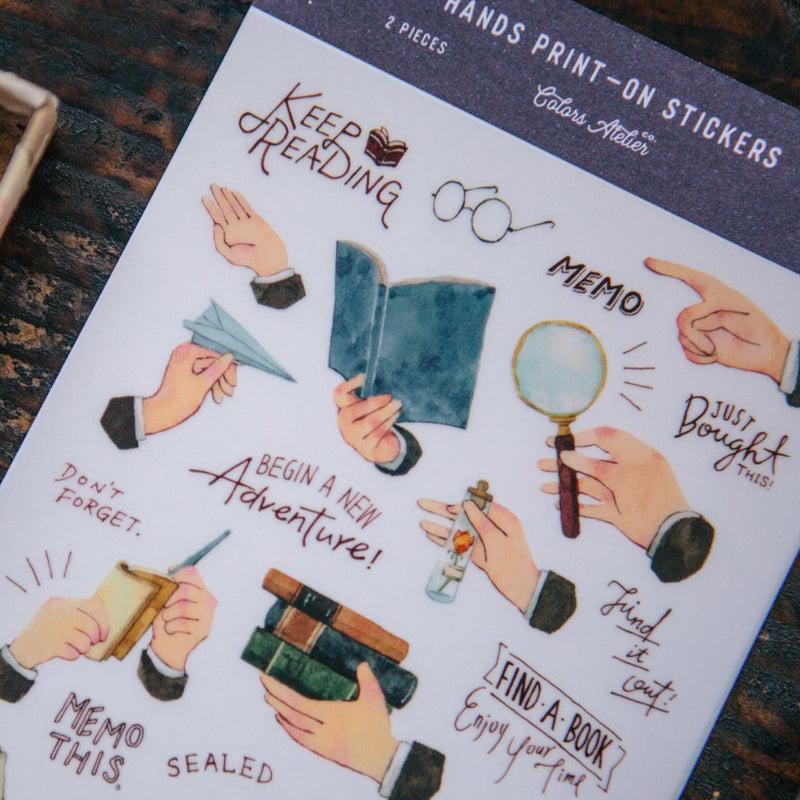 HANDS PRINT-ON STICKERS
2 PIECES
Colors Atelier co.
KEEP
READING
MEMO
JUST
Bought
THIS!
BEGIN A NEW
Adventure!
DON'T
FORGET.
Find
it
out!
FIND·A·BOOK
Enjoy your Time
MEMO
THIS.
SEALED